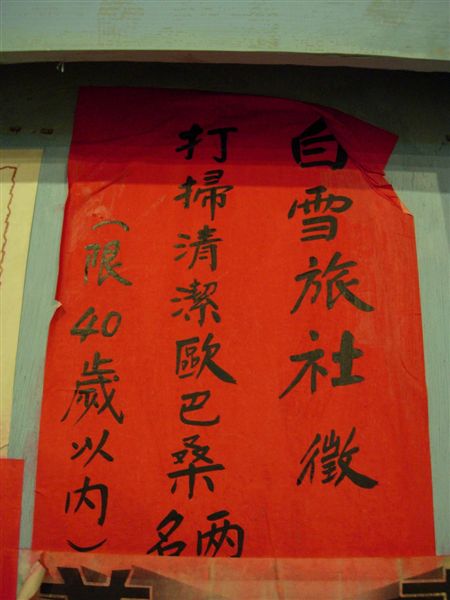 白雪旅社徵
打掃清潔歐巴桑两名
（限40歲以内）